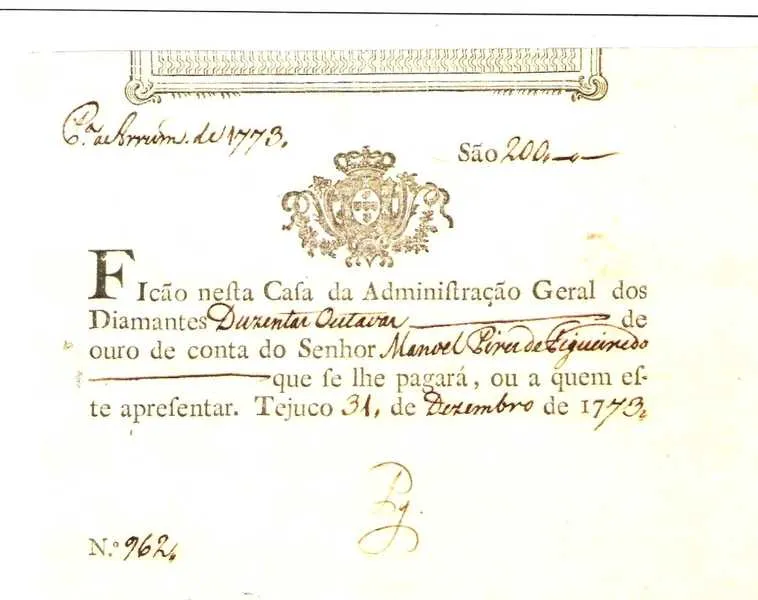 P.ª de Arrum. de 1773.
São 200,
FIcão neſta Caſa da Adminiſtração Geral dos
Diamantes Duzentas Outavas de
ouro de conta do Senhor Manoel Pires de Figueiredo
que ſe lhe pagará, ou a quem eſ-
te apreſentar. Tejuco 31, de Dezembro de 1773,
N.º 962,